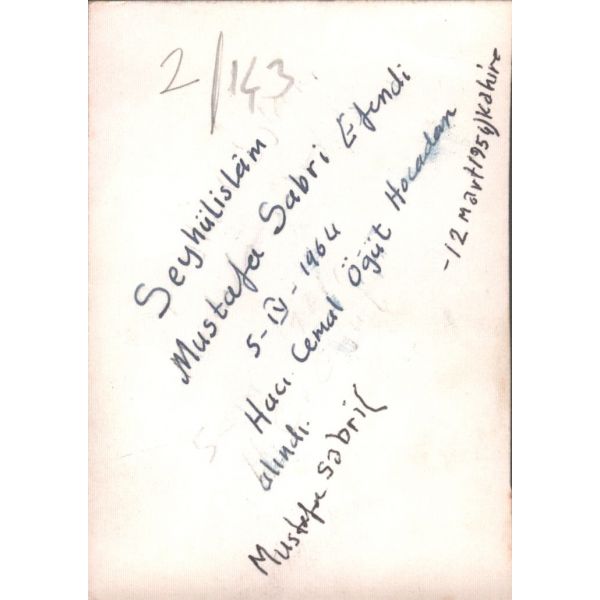 2/143
Seyhülislâm
Mustafa Sabri Efendi
5-IV-1964
Hacı Cemal Öğüt Hocadan
alındı.
Mustafa Sabri(
-12 Mart 1954)Kahire